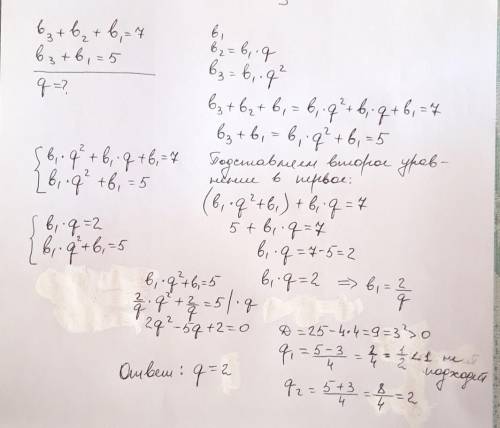 b₃ + b₂ + b₁ = 7
b₃ + b₁ = 5
q = ?
{ b₁·q² + b₁·q + b₁ = 7
b₁·q² + b₁ = 5
{ b₁·q = 2
b₁·q² + b₁ = 5
b₁
b₂ = b₁·q
b₃ = b₁·q²
b₃ + b₂ + b₁ = b₁·q² + b₁·q + b₁ = 7
b₃ + b₁ = b₁·q² + b₁ = 5
Подставляем второе урав-
нение в первое:
(b₁·q² + b₁) + b₁·q = 7
5 + b₁·q = 7
b₁·q = 7-5 = 2
b₁·q = 2 ⟹ b₁ = 2/q
b₁·q² + b₁ = 5
2/q · q² + 2/q = 5 | · q
2q² - 5q + 2 = 0
D = 25 - 4·4 = 9 = 3² > 0
q₁ = (5-3)/4 = 2/4 = 1/2 < 1 не
подходит
q₂ = (5+3)/4 = 8/4 = 2
Ответ: q = 2